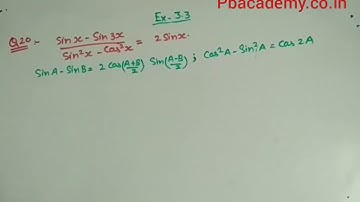 Pbacademy.co.in
Ex-3.3
Q20:- Sinx - Sin3x / Sin²x - Cos²x = 2Sinx.
SinA - SinB = 2 Cos(A+B/2) Sin(A-B/2) ; Cos²A - Sin²A = Cos2A